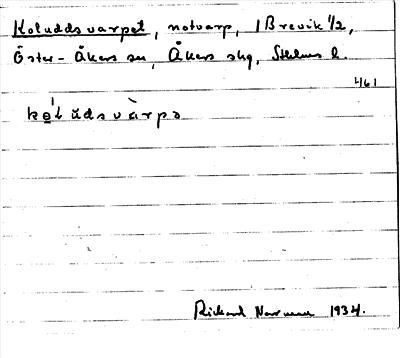 Koluddsvarpet, notvarp, 1 Brevik 1/2,
Öster-Åkers sn, Åkers skg, Sthlms l.
461
kolùdsvàrpə
Rickard 1934.